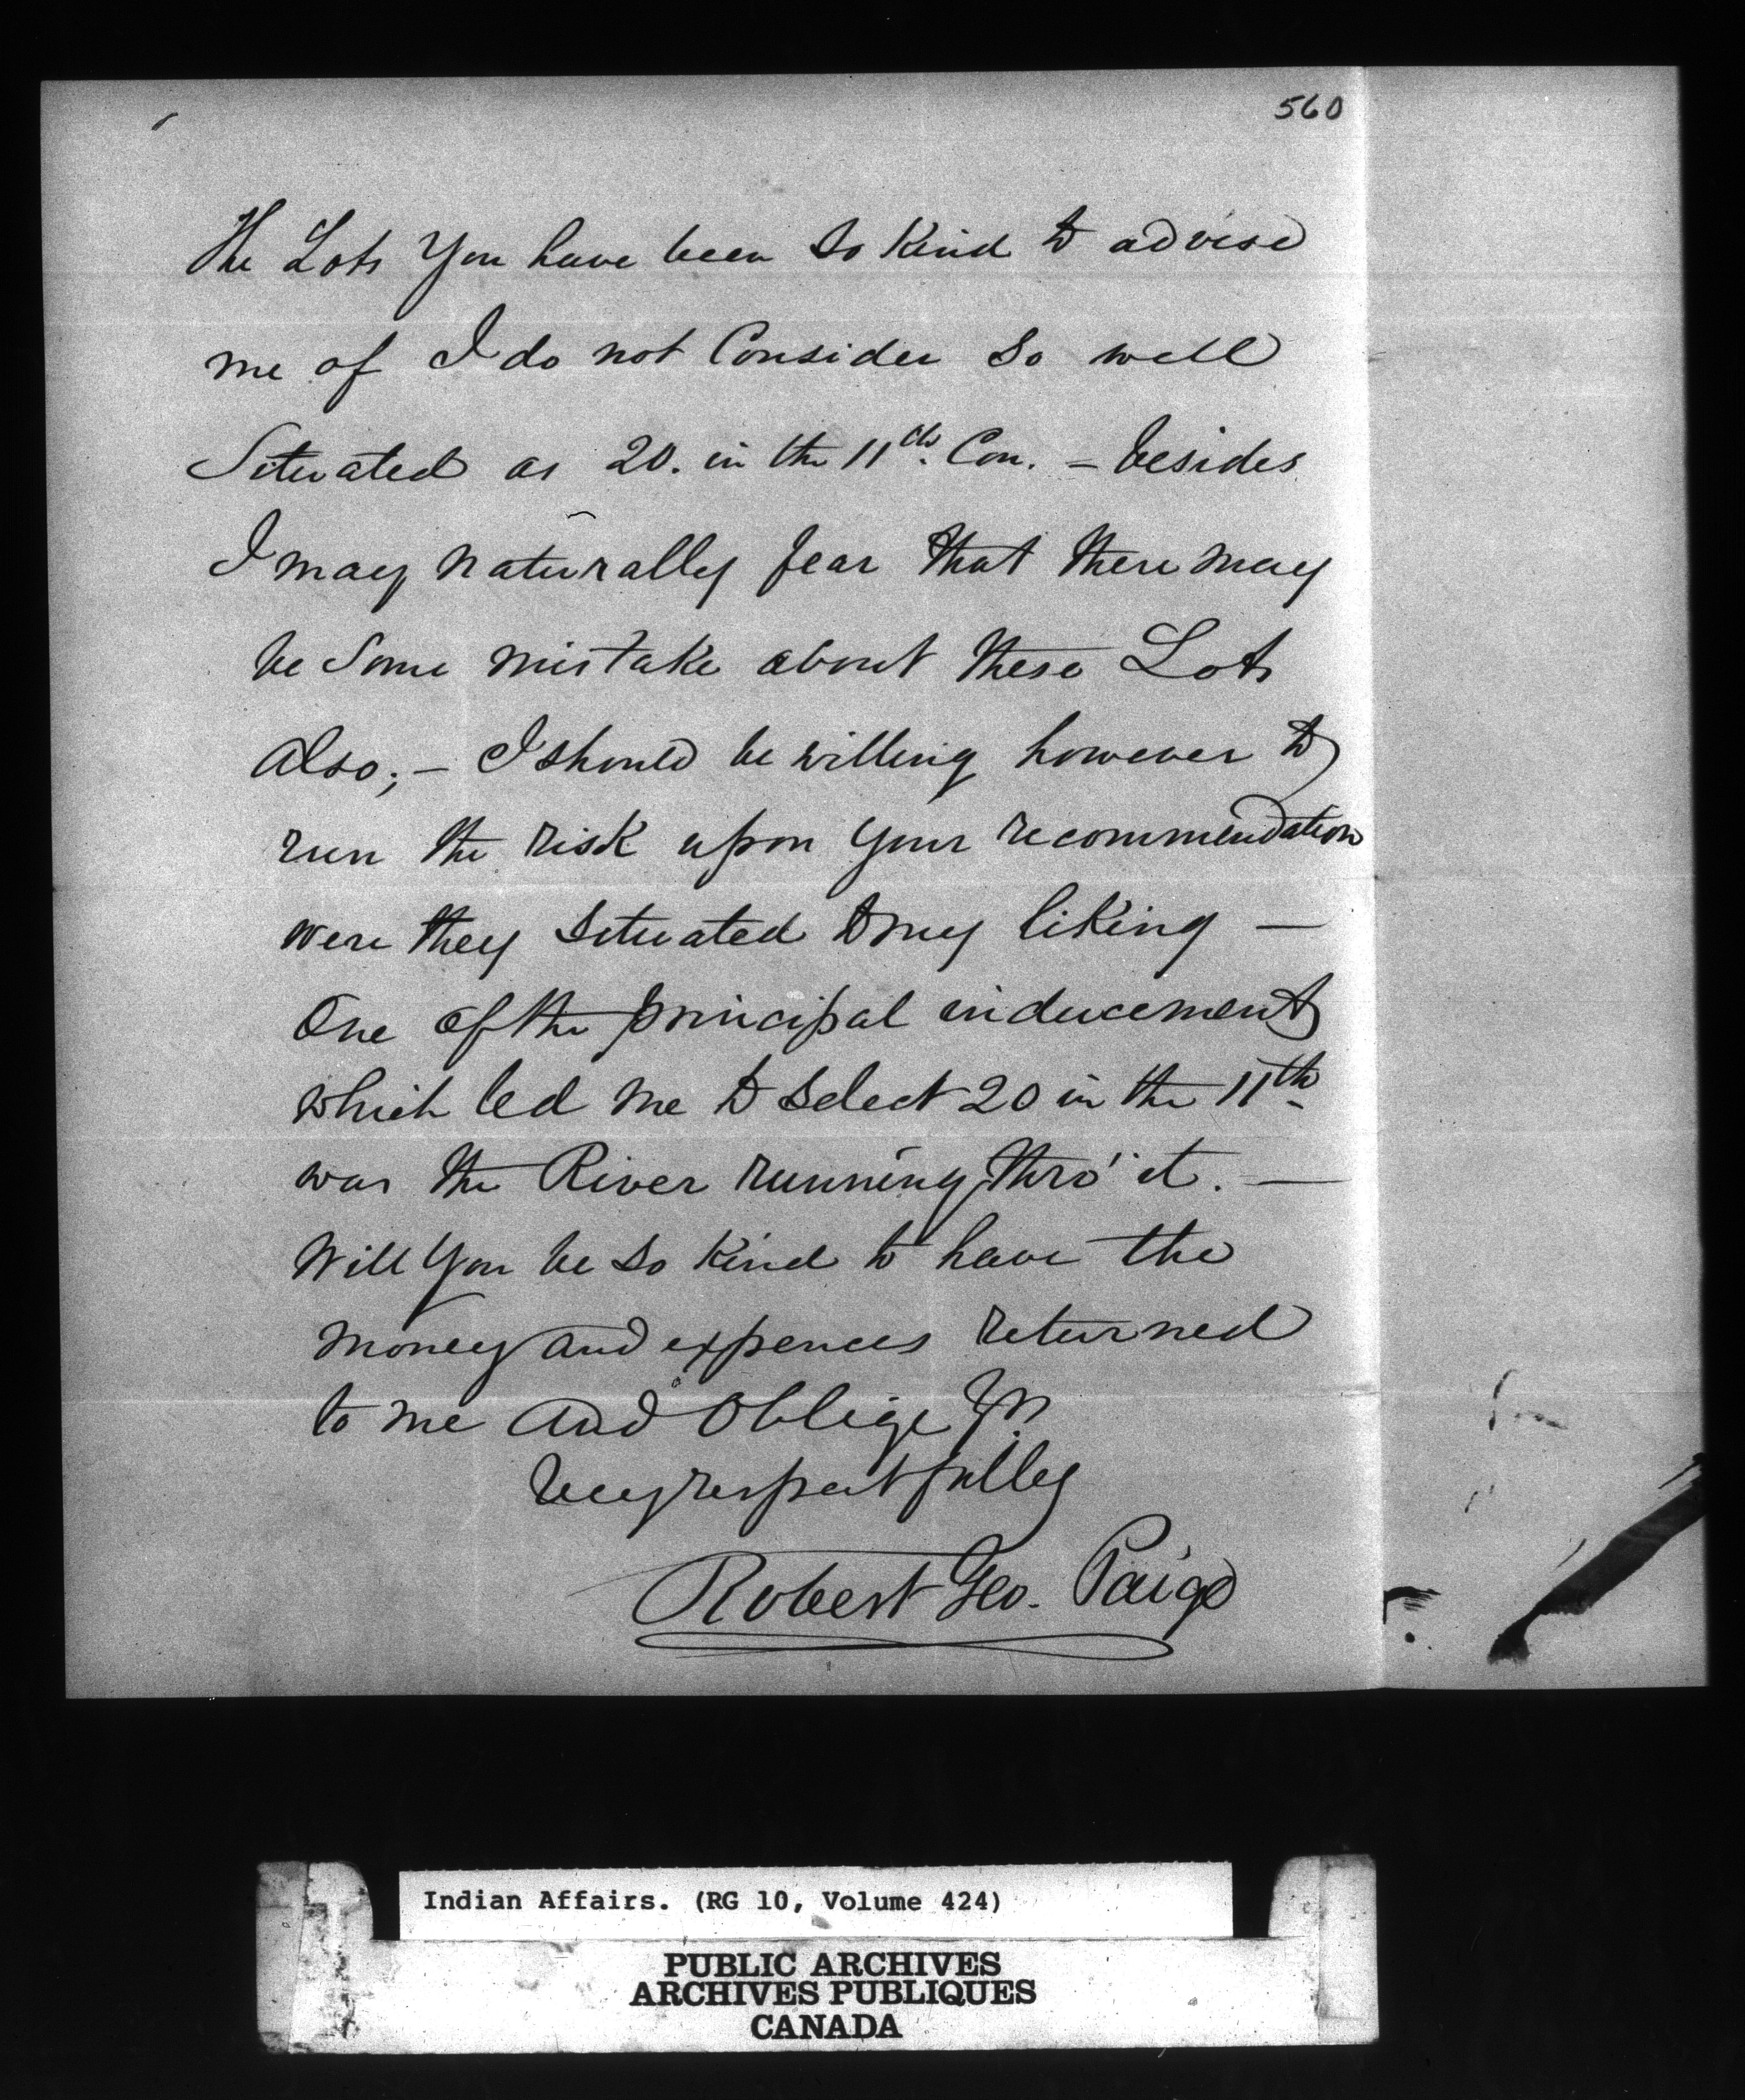 560
The Lots You have been so Kind to advise
me of I do not Consider so well
Situated as 20. in the 11th. Con. - besides
I may naturally fear that there may
be Some mistake about these Lots
also; - I should be willing however to
run the risk upon your recommendation
were they situated to my liking —
One of the principal inducements
which led me to select 20 in the 11th
was the River running thro' it. —
Will You be so Kind to have the
money and expences returned
to me and Oblige
Very respectfully
Robert Geo. Paige
Indian Affairs. (RG 10, Volume 424)
PUBLIC ARCHIVES
ARCHIVES PUBLIQUES
CANADA